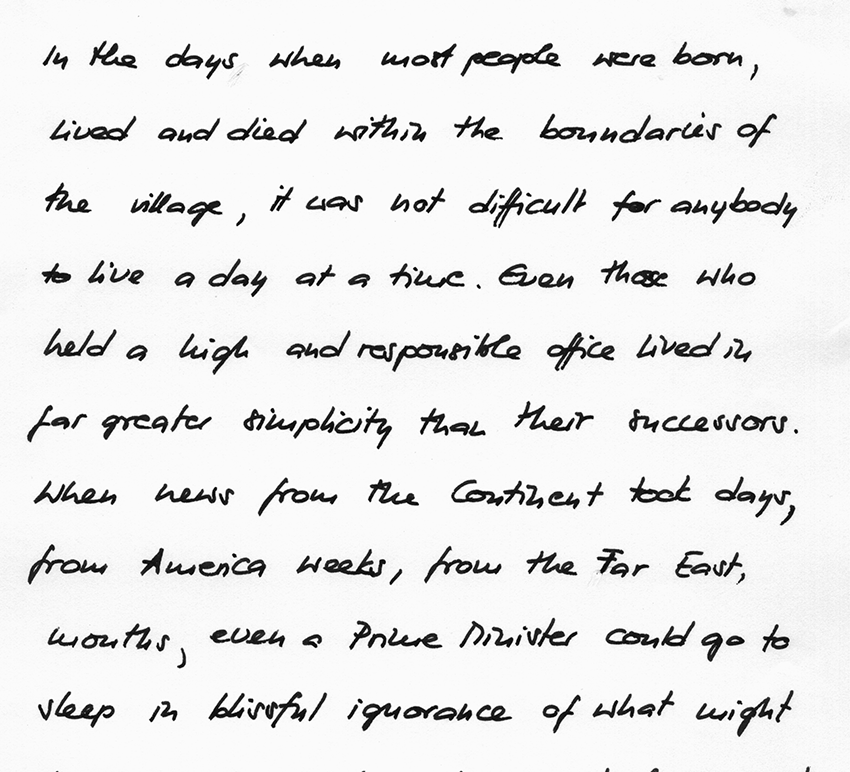 In the days when most people were born,
lived and died within the boundaries of
the village, it was not difficult for anybody
to live a day at a time. Even those who
held a high and responsible office lived in
far greater simplicity than their successors.
When news from the Continent took days,
from America weeks, from the Far East,
months, even a Prime Minister could go to
sleep in blissful ignorance of what might